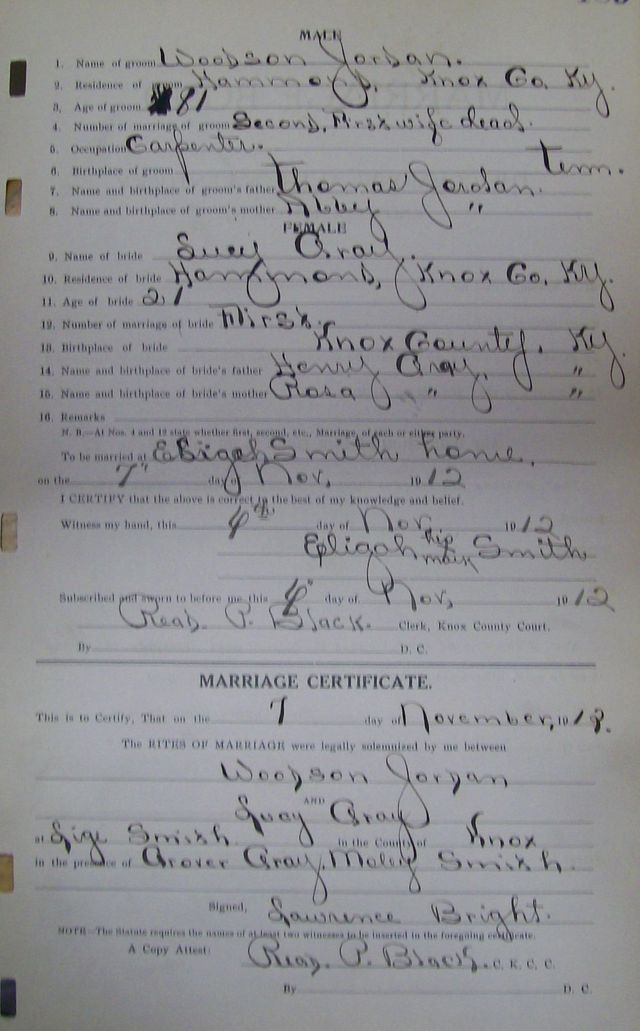 MALE
1. Name of groom Woodson Jordan.
2. Residence of groom Hammond, Knox Co. Ky.
3. Age of groom 81
4. Number of marriage of groom Second, First wife dead.
5. Occupation Carpenter.
6. Birthplace of groom Tenn.
7. Name and birthplace of groom's father Thomas Jordan.
8. Name and birthplace of groom's mother Abbey "
FEMALE
9. Name of bride Lucy Gray.
10. Residence of bride Hammond, Knox Co. Ky.
11. Age of bride 21
12. Number of marriage of bride First.
13. Birthplace of bride Knox County, Ky.
14. Name and birthplace of bride's father Henry Gray, "
15. Name and birthplace of bride's mother Rosa " "
16. Remarks
N. B.—At Nos. 4 and 12 state whether first, second, etc., Marriage, of each or either party.
To be married at Eligah Smith home.
on the 7" day of Nov, 1912
I CERTIFY that the above is correct to the best of my knowledge and belief.
Witness my hand, this 4th day of Nov. 1912
Eligah his mark Smith
Subscribed and sworn to before me this 4" day of Nov, 1912
Read. P. Black. Clerk, Knox County Court.
By D. C.
MARRIAGE CERTIFICATE.
This is to Certify, That on the 7 day of November, 191
The RITES OF MARRIAGE were legally solemnized by me between
Woodson Jordan
AND
Lucy Gray
at Lige Smith in the County of Knox
in the presence of Grover Gray, Smith.
Signed, Lawrence Bright.
NOTE—The Statute requires the names of at least two witnesses to be inserted in the foregoing certificate.
A Copy Attest: Read. P. Black. C. K. C. C.
By D. C.